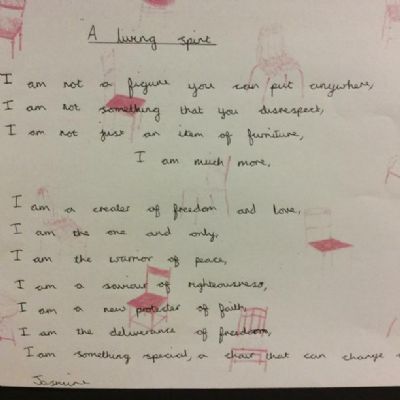 A living spirit
I am not a figure you can put anywhere,
I am not something that you disrespect,
I am not just an item of furniture,
I am much more,
I am a creater of freedom and love,
I am the one and only,
I am the warrior of peace,
I am a saviour of righteousness,
I am a new protecter of faith,
I am the deliverance of freedom,
I am something special, a chair that can change
Jasmine